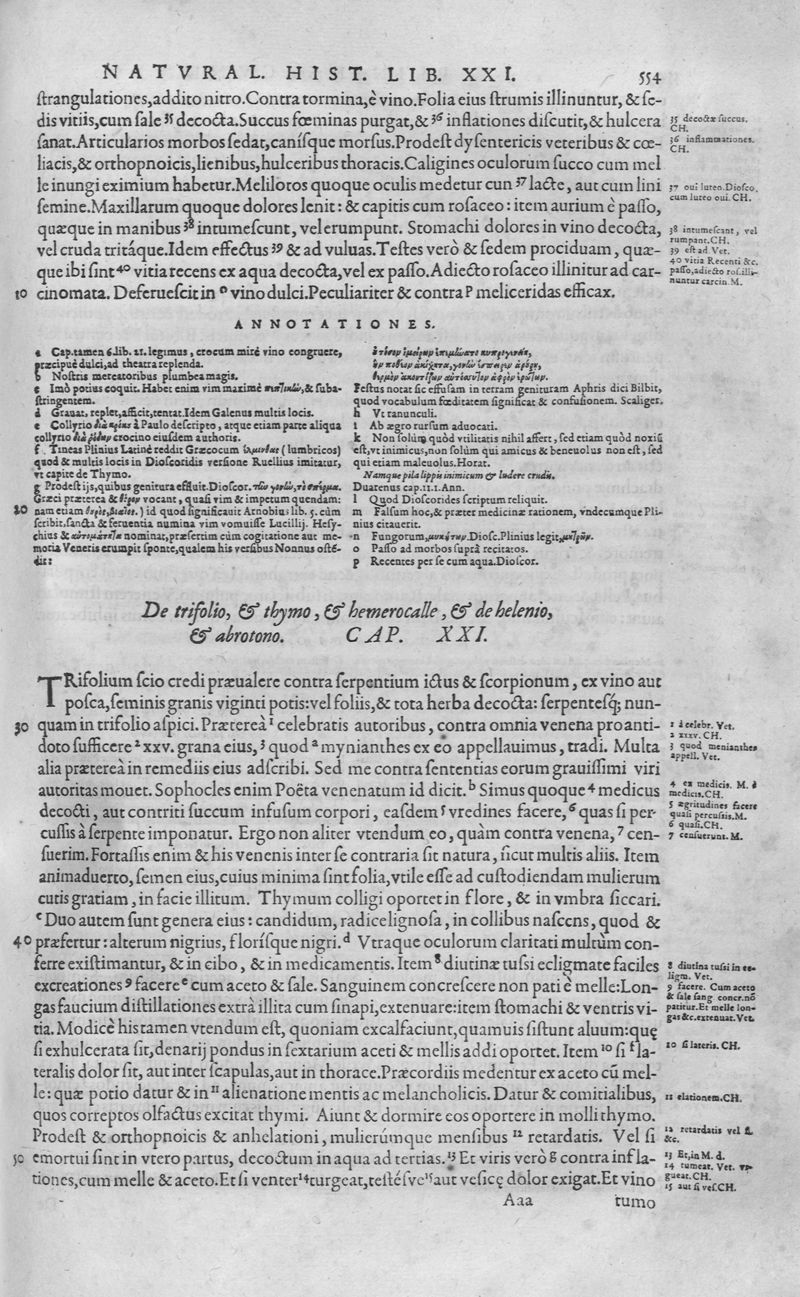 NATVRAL. HIST. LIB. XXI. 554
ſtrangulationes,addito nitro.Contra tormina,è vino.Folia eius ſtrumis illinuntur, & ſe-
dis vitiis,cum ſale 35 decocta.Succus fœminas purgat,& 36 inflationes diſcutit,& hulcera
ſanat.Articularios morbos ſedat,caníſque morſus.Prodeſt dyſentericis veteribus & cœ-
liacis,& orthopnoicis,lienibus,hulceribus thoracis.Caligines oculorum ſucco cum mel
le inungi eximium habetur.Melilotos quoque oculis medetur cun 37 lacte, aut cum lini
ſemine.Maxillarum quoque dolores lenit: & capitis cum roſaceo: item aurium è paſſo,
quæque in manibus 38 intumeſcunt, vel erumpunt. Stomachi dolores in vino decocta,
vel cruda tritáque.Idem effectus 39 & ad vuluas.Teſtes verò & ſedem prociduam, quæ-
que ibi ſint 40 vitia recens ex aqua decocta,vel ex paſſo.Adiecto roſaceo illinitur ad car-
10 cinomata. Deferueſcit in o vino dulci.Peculiariter & contra P meliceridas efficax.
35 decoctæ ſuccus.
CH.
36 inflammationes.
CH.
37 oui luteo.Dioſco.
cum luteo oui. CH.
38 intumeſcant, vel
rumpant.CH.
39 eſt ad Vet.
40 vitia Recenti &c.
paſſo,adiecto roſ.illi-
nuntur carcin.M.
ANNOTATIONES.
a Cap.tamen 6.lib. 21. legimus, crocum mirè vino congruere,
præcipuè dulci,ad theatra replenda.
b Noſtris mercatoribus plumbea magis.
c Imò potius coquit. Habet enim vim maximè & ſuba-
ſtringentem.
d Grauat, replet,afficit,tentat.Idem Galenus multis locis.
e Collyrio à Paulo deſcripto, atque etiam parte aliqua
collyrio crocino eiuſdem authoris.
f Tineas Plinius Latinè reddit Græcocum (lumbricos)
quod & multis locis in Dioſcoridis verſione Ruellius imitatur,
vt capite de Thymo.
g Prodeſt ijs,quibus genitura effluit.Dioſcor.
Græci præterea & vocant, quaſi vim & impetum quendam:
20 nam etiam ) id quod ſignificauit Arnobius lib. 5. cùm
ſcribit,ſancta & feruentia numina vim vomuiſſe Lucilij. Heſy-
chius & nominat,præſertim cùm cogitatione aut me-
moria Veneris erumpit ſponte,qualem his verſibus Nonnus oſtē-
dit:
Feſtus notat ſic effuſam in terram genituram Aphris dici Bilbit,
quod vocabulum fœditatem ſignificat & confuſionem. Scaliger.
h Vt ranunculi.
i Ab ægro rurſum aduocati.
k Non ſolùm quòd vtilitatis nihil affert, ſed etiam quòd noxiū
eſt,vt inimicus,non ſolùm qui amicus & beneuolus non eſt, ſed
qui etiam maleuolus.Horat.
Namque pila lippis inimicum & ludere crudis.
Duarenus cap.11.1.Ann.
l Quod Dioſcorides ſcriptum reliquit.
m Falſum hoc,& præter medicinæ rationem, vndecumque Pli-
nius citauerit.
n Fungorum, Dioſc.Plinius legit,
o Paſſo ad morbos ſuprà recitatos.
p Recentes per ſe cum aqua.Dioſcor.
De trifolio, & thymo, & hemerocalle, & de helenio,
& abrotono. CAP. XXI.
TRifolium ſcio credi præualere contra ſerpentium ictus & ſcorpionum, ex vino aut
poſca,ſeminis granis viginti potis:vel foliis,& tota herba decocta: ſerpenteſq; nun-
30 quam in trifolio aſpici. Præterea 1 celebratis autoribus, contra omnia venena pro anti-
doto ſufficere 2 xxv. grana eius, 3 quod a mynianthes ex eo appellauimus, tradi. Multa
alia præterea in remediis eius adſcribi. Sed me contra ſententias eorum grauiſſimi viri
autoritas mouet. Sophocles enim Poëta venenatum id dicit. b Simus quoque 4 medicus
decocti, aut contriti ſuccum infuſum corpori, eaſdem 5 vredines facere, 6 quas ſi per-
cuſſis à ſerpente imponatur. Ergo non aliter vtendum eo, quàm contra venena, 7 cen-
ſuerim.Fortaſſis enim & his venenis inter ſe contraria ſit natura, ſicut multis aliis. Item
animaduerto, ſemen eius,cuius minima ſint folia,vtile eſſe ad cuſtodiendam mulierum
cutis gratiam, in facie illitum. Thymum colligi oportet in flore, & in vmbra ſiccari.
c Duo autem ſunt genera eius: candidum, radice lignoſa, in collibus naſcens, quod &
40 præfertur: alterum nigrius, floríſque nigri. d Vtraque oculorum claritati multùm con-
ferre exiſtimantur, & in cibo, & in medicamentis. Item 8 diutinæ tuſsi ecligmate faciles
excreationes 9 facere e cum aceto & ſale. Sanguinem concreſcere non pati è melle:Lon-
gas faucium diſtillationes extrà illita cum ſinapi,extenuare:item ſtomachi & ventris vi-
tia. Modicè his tamen vtendum eſt, quoniam excalfaciunt,quamuis ſiſtunt aluum:quę
ſi exhulcerata ſit,denarij pondus in ſextarium aceti & mellis addi oportet. Item 10 ſi f la-
teralis dolor ſit, aut inter ſcapulas,aut in thorace.Præcordiis medentur ex aceto cū mel-
le: quæ potio datur & in 11 alienatione mentis ac melancholicis. Datur & comitialibus,
quos correptos olfactus excitat thymi. Aiunt & dormire eos oportere in molli thymo.
Prodeſt & orthopnoicis & anhelationi, mulierúmque menſibus 12 retardatis. Vel ſi
50 emortui ſint in vtero partus, decoctum in aqua ad tertias. 13 Et viris verò g contra infla-
tiones,cum melle & aceto.Et ſi venter 14 turgeat,teſtéſve 15 aut veſicę dolor exigat.Et vino
Aaa tumo
1 à celebr. Vet.
2 xxxv. CH.
3 quod menianthes
appell. Vet.
4 ex medicis. M. è
medicis.CH.
5 ægritudines facere
quaſi percuſsis.M.
6 quaſi.CH.
7 cenſuerunt. M.
8 diutina tuſsi in ec-
ligm. Vet.
9 facere. Cum aceto
& ſale ſang concr.nō
patitur.Et melle lon-
gas &c.extenuat.Vet.
10 ſi lateris. CH.
11 elationem.CH.
12 retardatis vel ſi.
&c.
13 Et,in M. d.
14 tumeat. Vet. vr-
gueat.CH.
15 aut ſi veſ.CH.